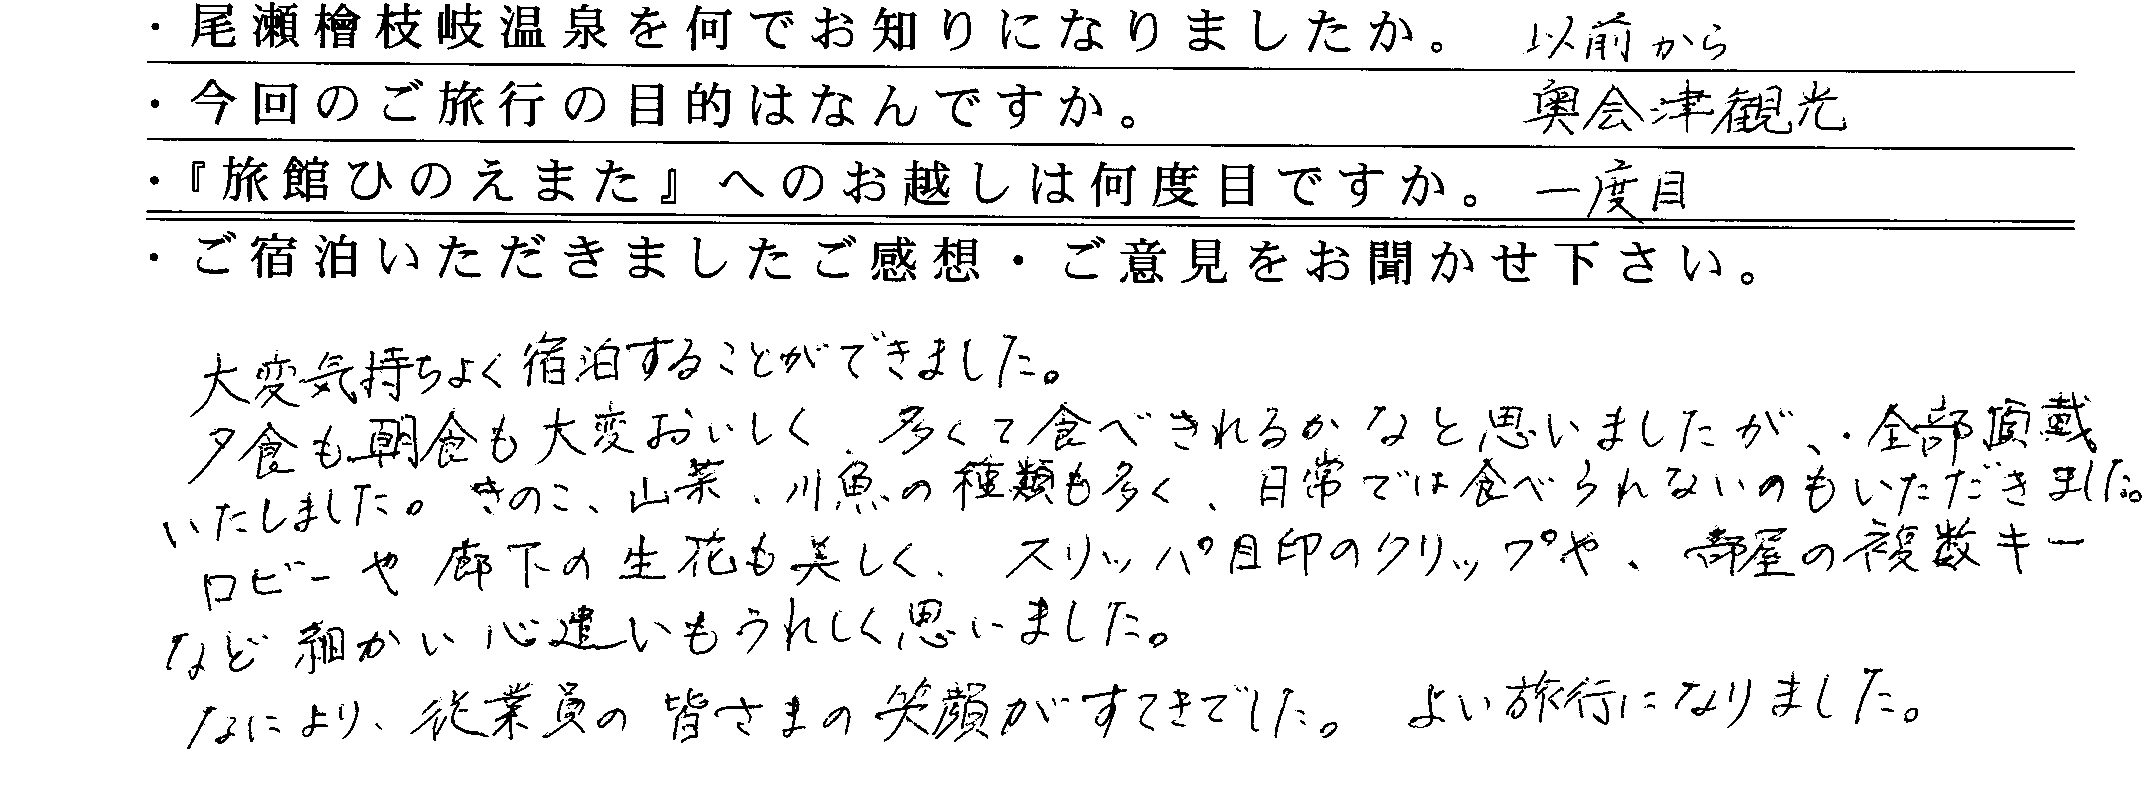 ・尾瀬檜枝岐温泉を何でお知りになりましたか。 以前から
・今回のご旅行の目的はなんですか。 奥会津観光
・『旅館ひのえまた』へのお越しは何度目ですか。 一度目
・ご宿泊いただきましたご感想・ご意見をお聞かせ下さい。
大変気持ちよく宿泊することができました。
夕食も朝食も大変おいしく、多くて食べきれるかなと思いましたが、全部頂戴
いたしました。きのこ、山菜、川魚の種類も多く、日常では食べられないのもいただきました。
ロビーや廊下の生花も美しく、スリッパ目印のクリップや、部屋の複数キー
など細かい心遣いもうれしく思いました。
なにより、従業員の皆さまの笑顔がすてきでした。よい旅行になりました。